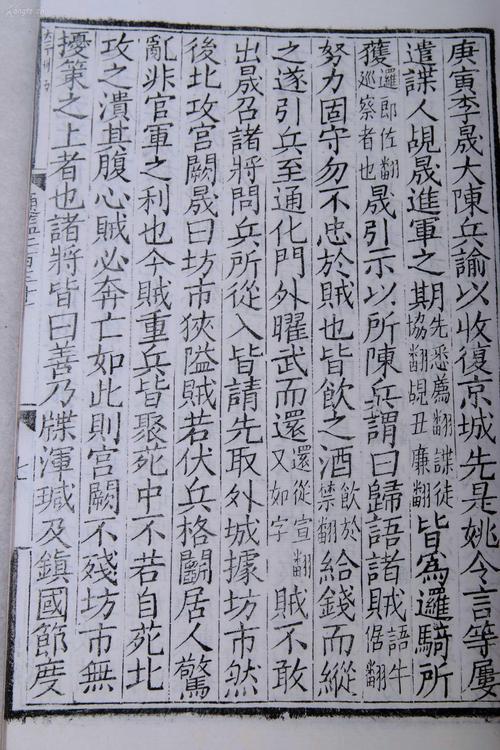 庚寅李晟大陳兵諭以收復京城先是姚令言等屢
遣諜人覘晟進軍之期先悉薦翻諜徒協翻覘丑廉翻皆為邏騎所
獲邏郎佐翻巡察者也晟引示以所陳兵謂曰歸語諸賊語牛倨翻
努力固守勿不忠於賊也皆飲之酒飲於禁翻給錢而縱
之遂引兵至通化門外曜武而還還從宣翻又如字賊不敢
出晟召諸將問兵所從入皆請先取外城據坊市然
後北攻宮闕晟曰坊市狹隘賊若伏兵格鬭居人驚
亂非官軍之利也今賊重兵皆聚苑中不若自苑北
攻之潰其腹心賊必奔亡如此則宮闕不殘坊市無
擾策之上者也諸將皆曰善乃牒渾瑊及鎮國節度
七